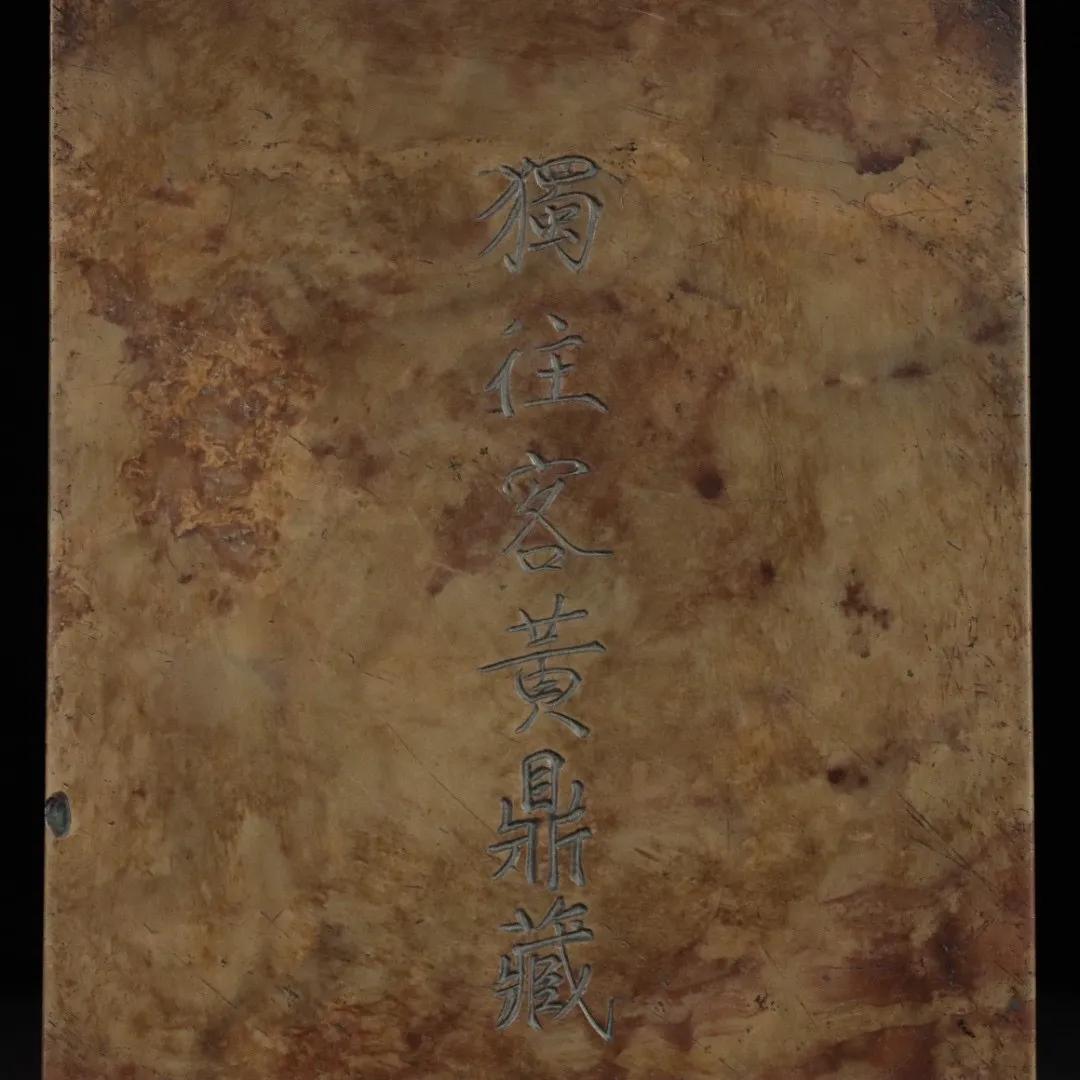 獨往客黃鼎藏